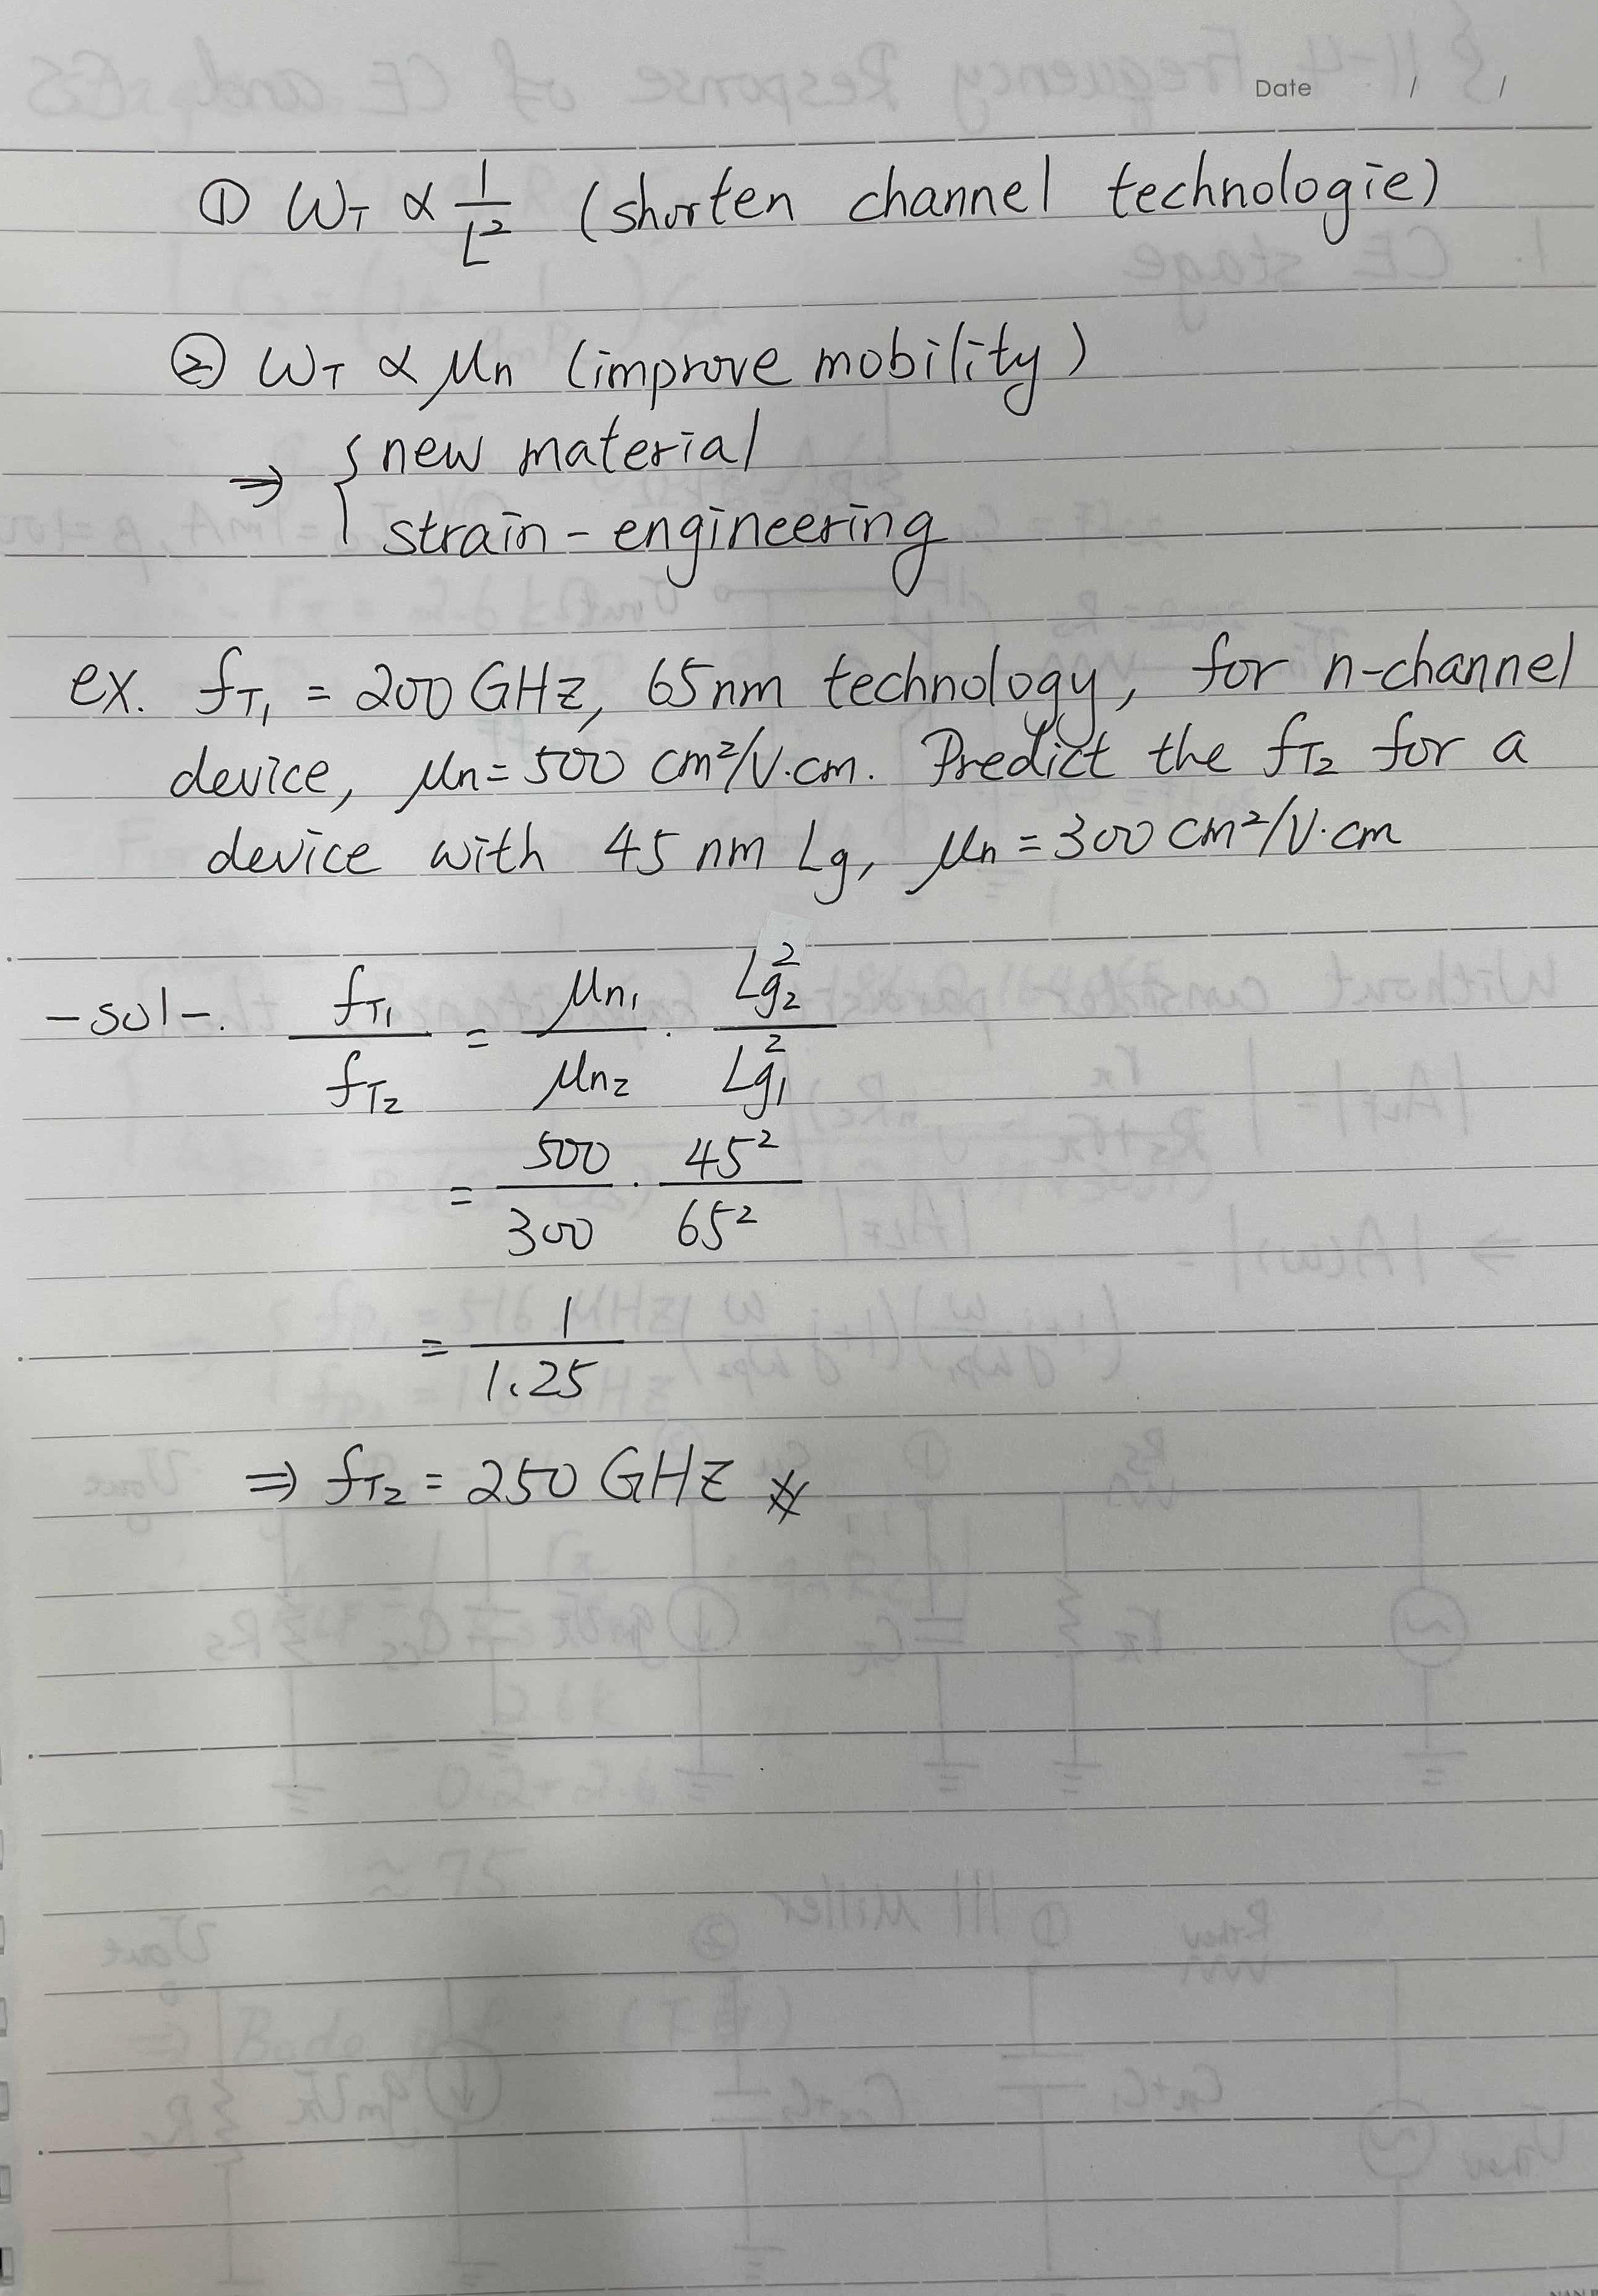 Date / /
① ωT ∝ 1/L² (shorten channel technologie)
② ωT ∝ μn (improve mobility)
⇒ { new material
strain-engineering
ex. fT1 = 200 GHz, 65nm technology, for n-channel
device, μn = 500 cm²/V·cm. Predict the fT2 for a
device with 45 nm Lg, μn = 300 cm²/V·cm
-sol-. fT1/fT2 = μn1/μn2 · Lg2²/Lg1²
= 500/300 · 45²/65²
= 1/1.25
⇒ fT2 = 250 GHz ※